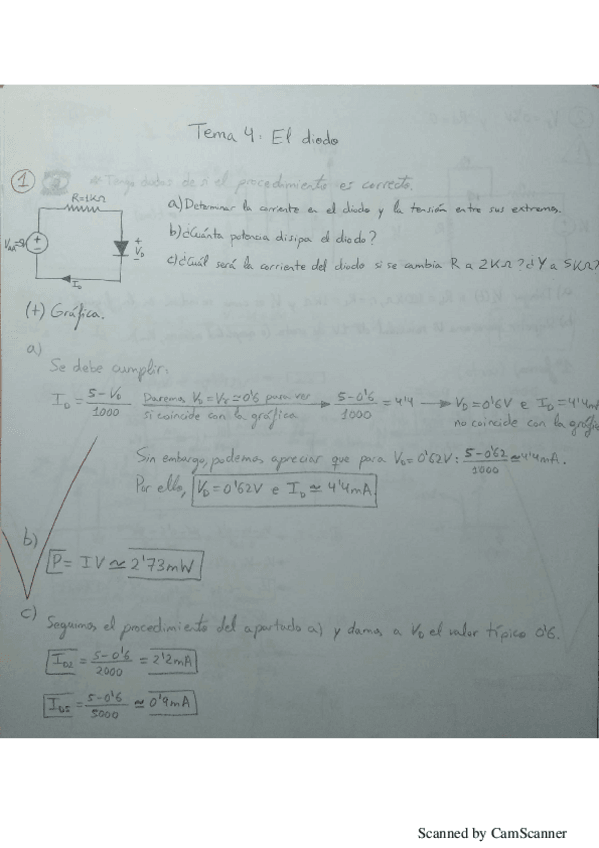 Tema 4: El diodo
① * Tengo dudas de si el procedimiento es correcto.
R=1KΩ
a) Determinar la corriente en el diodo y la tensión entre sus extremos.
b) ¿Cuánta potencia disipa el diodo?
c) ¿Cuál será la corriente del diodo si se cambia R a 2KΩ? ¿Y a 5KΩ?
+
V_D
-
I_D
(+) Gráfica.
a)
Se debe cumplir:
I_D = 5-V_D / 1000 Daremos V_D = V_γ ≃ 0'6 para ver si coincide con la gráfica → 5-0'6 / 1000 = 4'4 → V_D = 0'6V e I_D = 4'4
no coincide con la gráfi
Sin embargo, podemos apreciar que para V_D = 0'62V: 5-0'62 / 1000 ≃ 4'4mA.
Por ello, V_D = 0'62V e I_D ≃ 4'4mA.
b)
P = IV ≃ 2'73mW
c)
Seguimos el procedimiento del apartado a) y damos a V_D el valor típico 0'6.
I_D2 = 5-0'6 / 2000 = 2'2mA
I_D5 = 5-0'6 / 5000 ≃ 0'9mA
Scanned by CamScanner